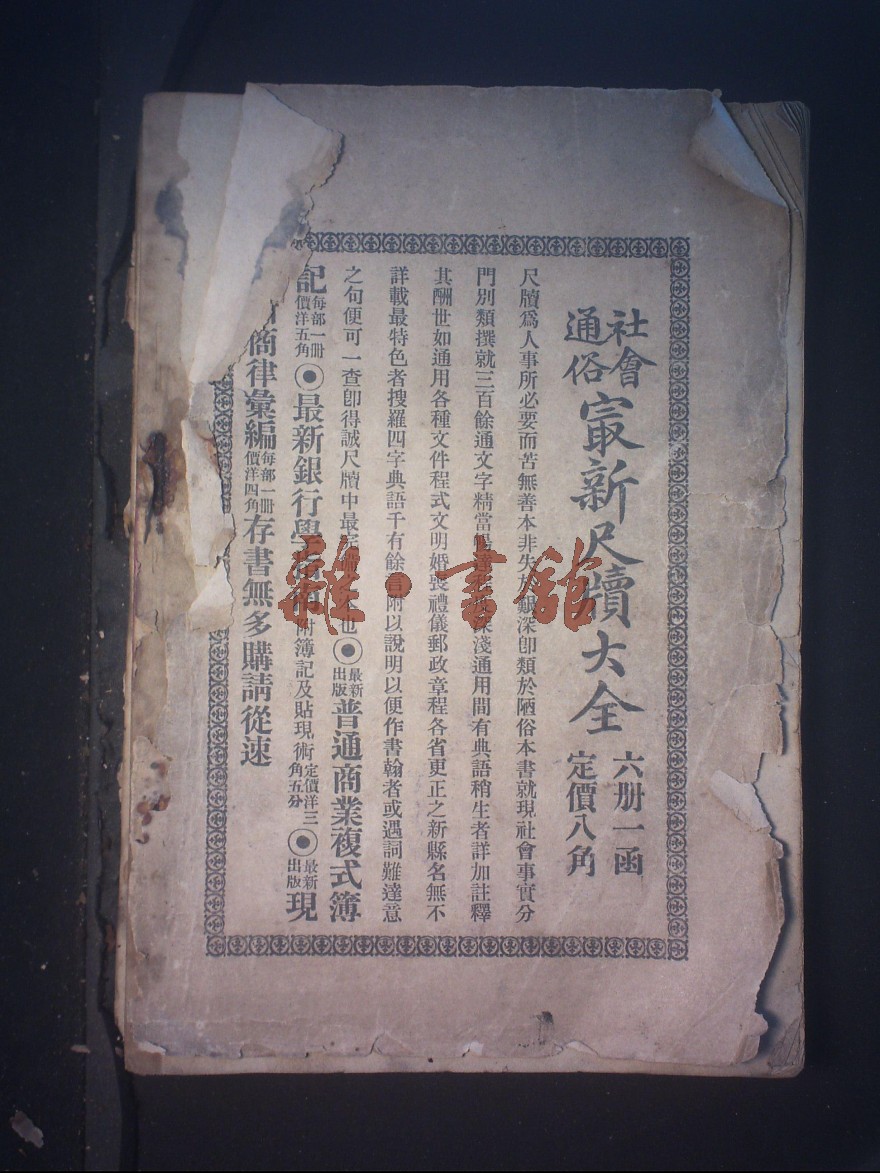 社會
通俗
㝡新尺牘大全
六册一函
定價八角
尺牘爲人事所必要而苦無善本非失於艱深卽類於陋俗本書就現社會事實分
門別類撰就三百餘通文字精當 深淺通用間有典語稍生者詳加註釋
其酬世如通用各種文件程式文明婚喪禮儀郵政章程各省更正之新縣名無不
詳載最特色者搜羅四字典語千有餘言附以說明以便作書翰者或遇詞難達意
之句便可一查卽得誠尺牘中最完 本也◉最新出版普通商業複式簿
記每部一冊價洋五角◉最新銀行學 附簿記及貼現術定價洋三角五分◉最新出版現
商律彙編每部一冊價洋四角存書無多購請從速
雜·書館